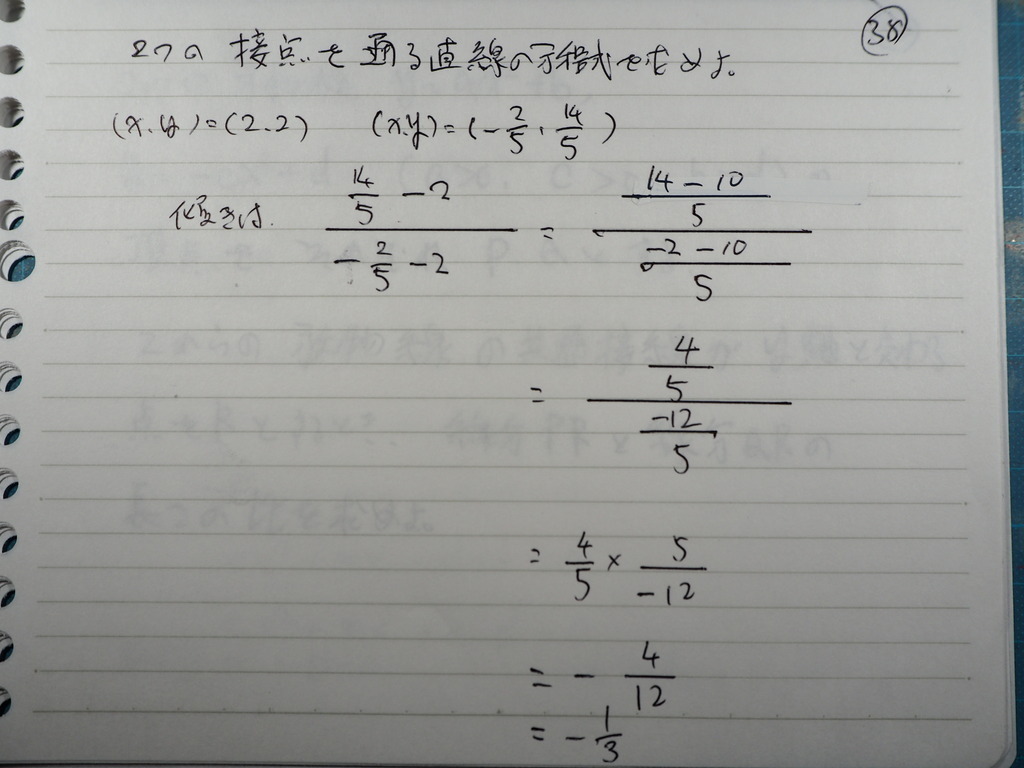 38
2つの接点を通る直線の方程式を求めよ。
(x.y)=(2.2) (x.y)=(-2/5, 14/5)
傾きは. (14/5 - 2)/(-2/5 - 2) = ((14-10)/5)/((-2-10)/5)
= (4/5)/(-12/5)
= 4/5 × 5/-12
= - 4/12
= - 1/3